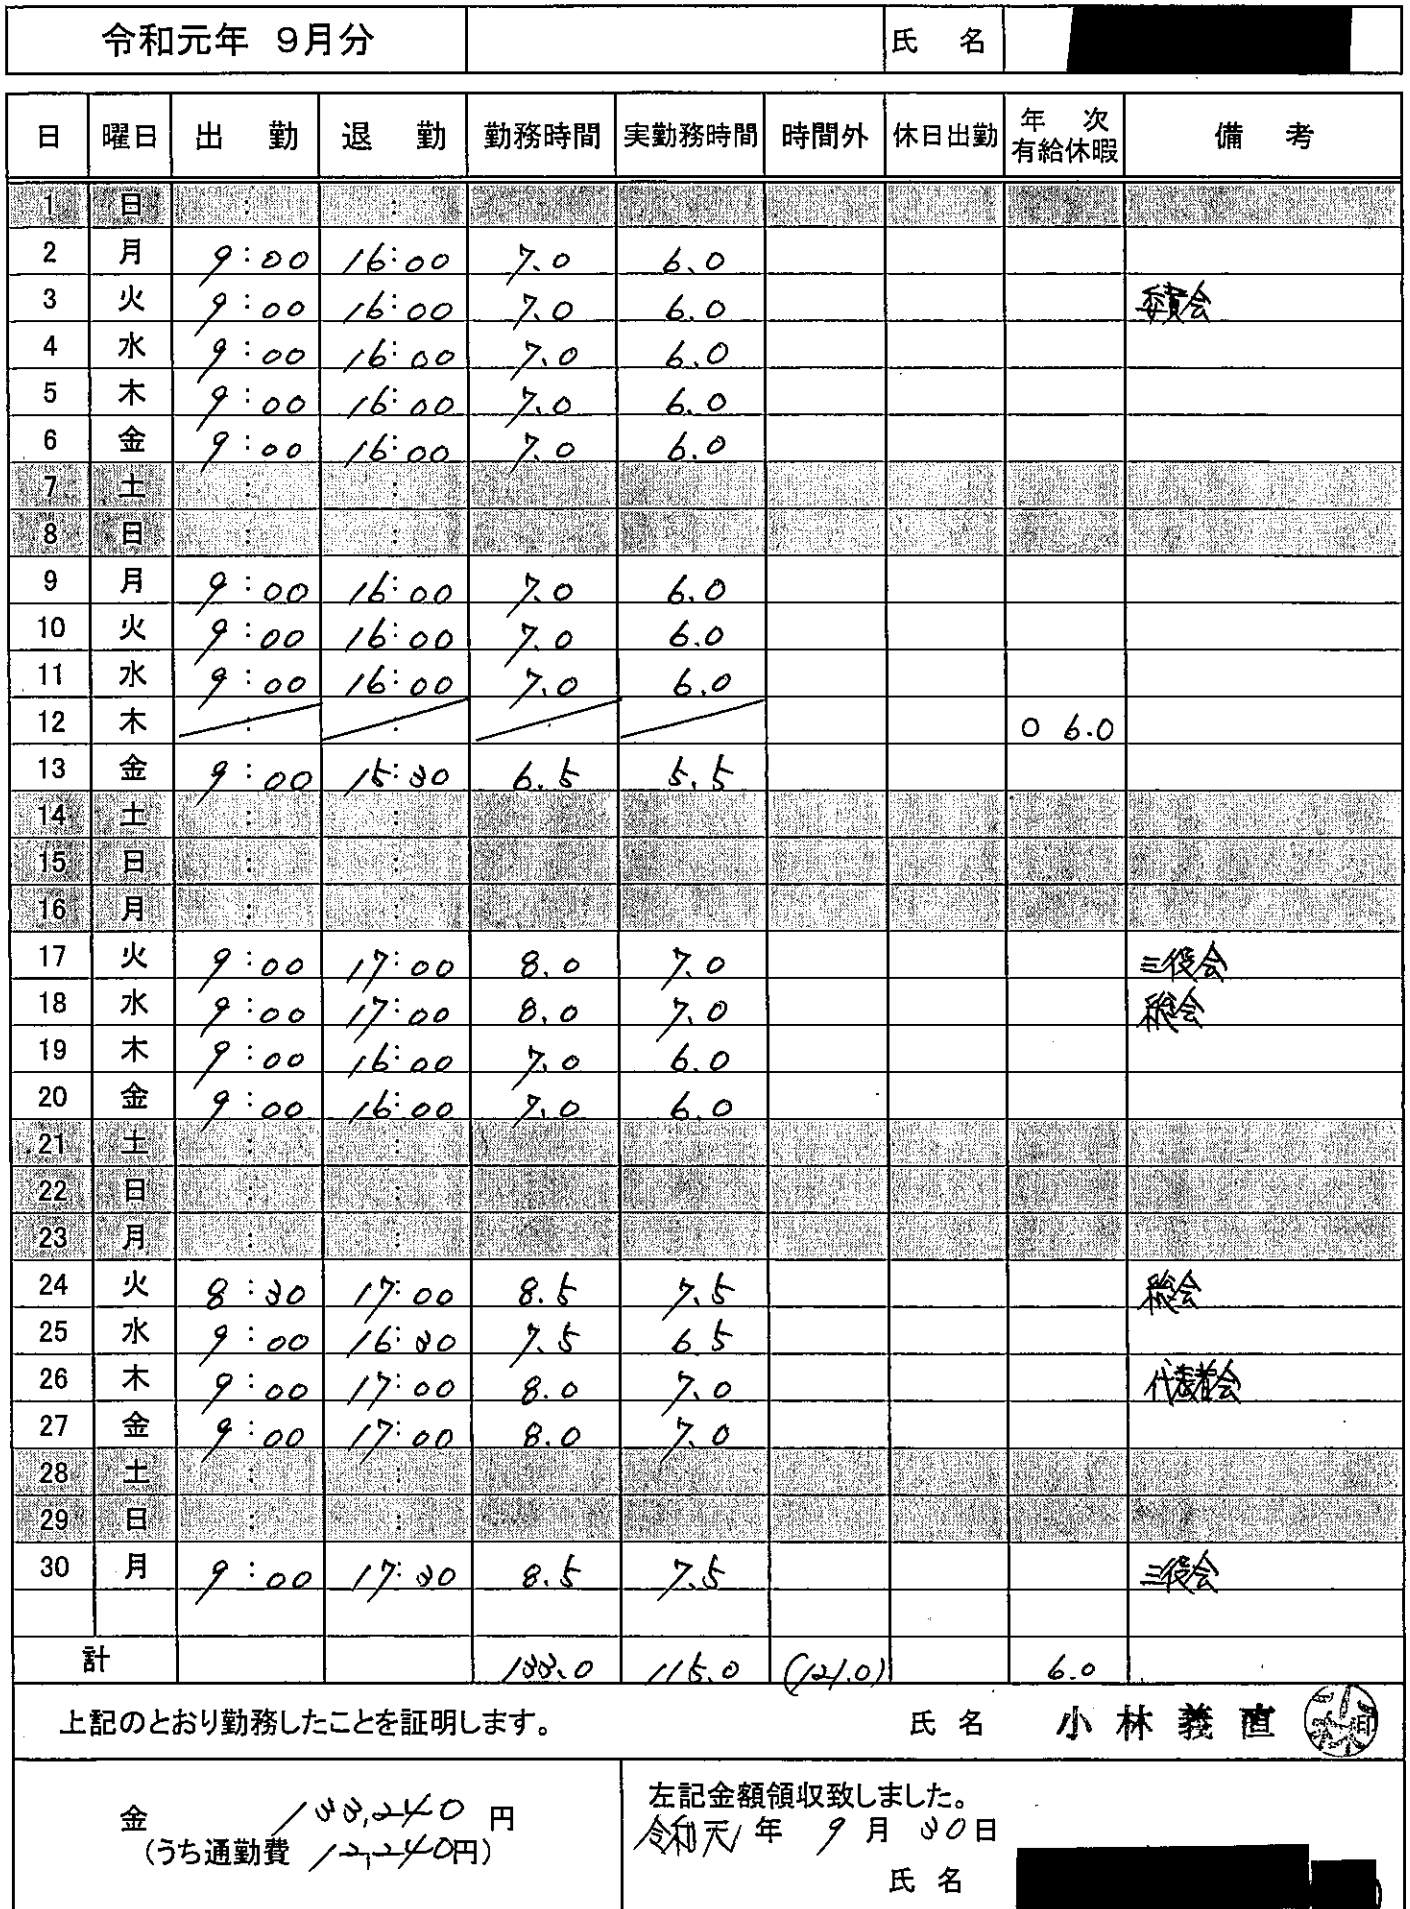 令和元年 9月分 氏 名
日 曜日 出 勤 退 勤 勤務時間 実勤務時間 時間外 休日出勤 年 次 有給休暇 備 考
1 日 : :
2 月 9:00 16:00 7.0 6.0
3 火 9:00 16:00 7.0 6.0 委員会
4 水 9:00 16:00 7.0 6.0
5 木 9:00 16:00 7.0 6.0
6 金 9:00 16:00 7.0 6.0
7 土 : :
8 日 : :
9 月 9:00 16:00 7.0 6.0
10 火 9:00 16:00 7.0 6.0
11 水 9:00 16:00 7.0 6.0
12 木 : : 0 6.0
13 金 9:00 15:30 6.5 5.5
14 土 : :
15 日 : :
16 月 : :
17 火 9:00 17:00 8.0 7.0 三役会
18 水 9:00 17:00 8.0 7.0 総会
19 木 9:00 16:00 7.0 6.0
20 金 9:00 16:00 7.0 6.0
21 土 : :
22 日 : :
23 月 : :
24 火 8:30 17:00 8.5 7.5 総会
25 水 9:00 16:30 7.5 6.5
26 木 9:00 17:00 8.0 7.0 代表者会
27 金 9:00 17:00 8.0 7.0
28 土 : :
29 日 : :
30 月 9:00 17:30 8.5 7.5 三役会
計 133.0 115.0 (121.0) 6.0
上記のとおり勤務したことを証明します。 氏 名 小 林 義 直
金 133,240 円
(うち通勤費 12,240円)
左記金額領収致しました。
令和元年 9月 30日
氏 名